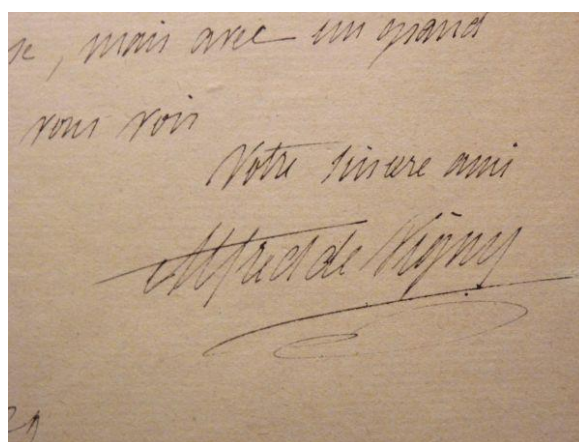 se, mais avec un grand
vous voir
Votre sincere ami
Alfred de Vigny
29